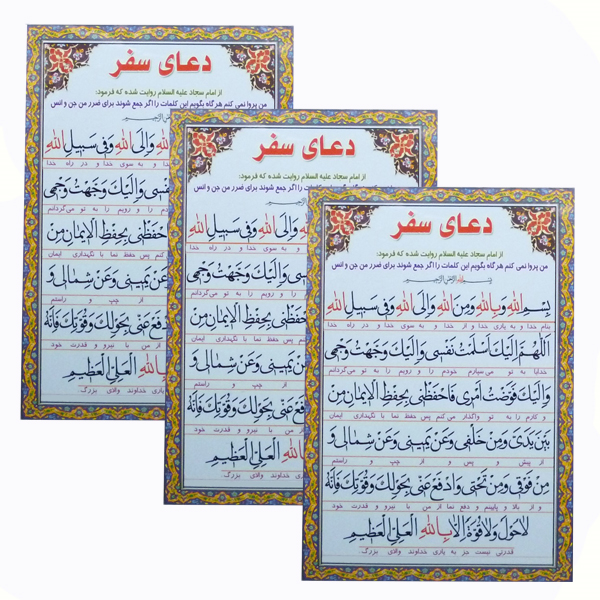 دعای سفر
از امام سجاد علیه السلام روایت شده که فرمود:
من پروا نمی کنم هرگاه بگویم این کلمات را اگر جمع شوند برای ضرر من جن و انس
بسم الله الرحمن الرحیم
بِسْمِ اللهِ وَبِاللهِ وَمِنَ اللهِ وَاِلَى اللهِ وَفى سَبيلِ اللهِ
بنام خدا و به یاری خدا و از خدا و به سوی خدا و در راه خدا
اَللّهُمَّ اِلَيْكَ اَسْلَمْتُ نَفْسى وَاِلَيْكَ وَجَّهْتُ وَجْهى
خدایا به تو می سپارم خودم را و رویم را به تو می‌گردانم
وَاِلَيْكَ فَوَّضْتُ اَمْرى فَاحْفَظْنى بِحِفْظِ الْايمانِ مِنْ
و کارم را به تو واگذار می کنم پس حفظ نما با نگهداری ایمان
بَيْنِ يَدَىَّ وَمِنْ خَلْفى وَعَنْ يَمينى وَعَنْ شِمالى وَ
از پیش و پس و از چپ و راستم
مِنْ فَوْقى وَمِنْ تَحْتى وَادْفَعْ عَنّى بِحَوْلِكَ وَقُوَّتِكَ فَاِنَّهُ
و از بالا و پایینم و دفع نما از من با نیرو و قدرت خود
لاحَوْلَ وَلاقُوَّةَ اِلاّ بِاللهِ الْعَلِىِّ الْعَظيمِ
قدرتی نیست جز به یاری خداوند والای بزرگ.